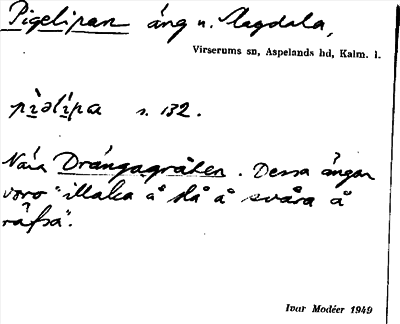 Pigelipan äng u. Magdala,
Virserums sn, Aspelands hd, Kalm. l.
pìəlípa s. 132.
Nära Drängagråten. Dessa ängar
voro "illaka å slå å svåra å
räfsa".
Ivar Modéer 1949